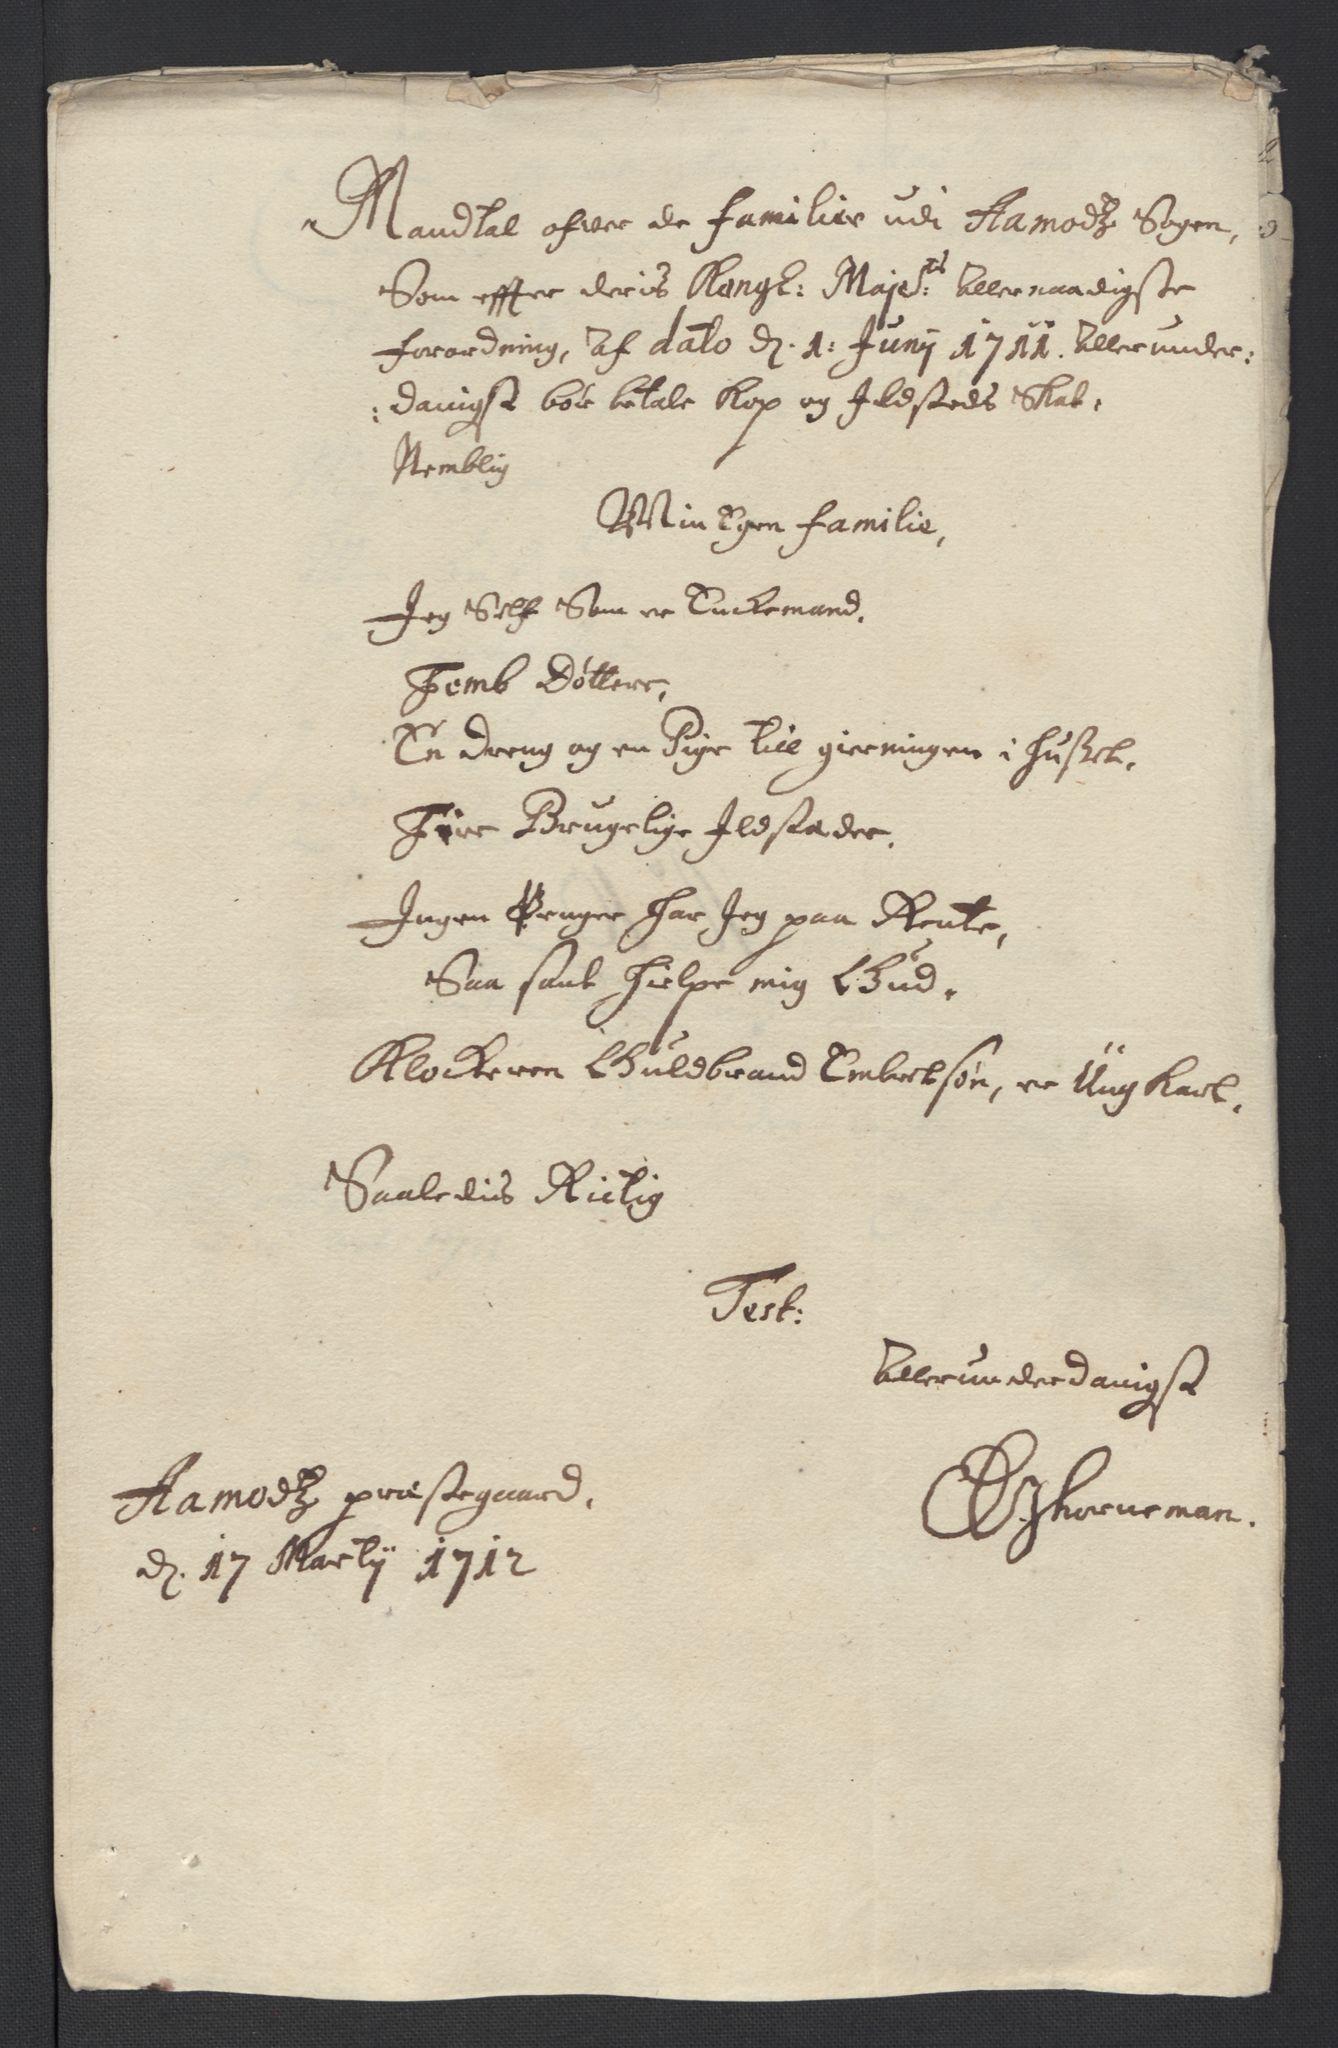 Mandtal ofver de familier udi Aamodtz Sogen,
Som effter deris Kongl: Majst:ts Allernaadigste
forordning, Af dato d. 1: Junij 1711. Allerunder:
:danigst bör betale Kop og Ildsteds Skat,
Nemblig
Min Egen familie,
Jeg Self Som er Enckemand.
Femb Döttere,
En dreng og en Pige till gierningen i huset.
Fire Brugelige Ildstæder.
Ingen Penger har Jeg paa Rente,
Saa sant hielpe mig Gud.
Klockeren Guldbrand Embretsön, er Ung Karl.
Saaledis Rictig
Test:
Allerunderdanigst
Horneman.
Aamodtz præstegaard.
d. 17 Martij 1712